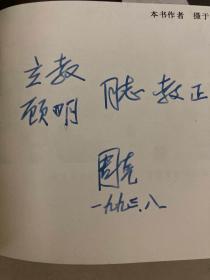 本书作者 摄于
立教
顾明 同志 教正
周克
一九九三.八